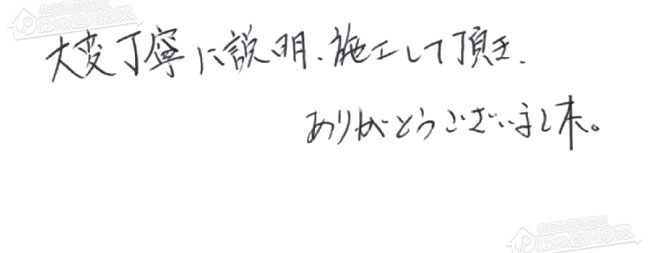 大変丁寧に説明、施工して頂き、
ありがとうございました。